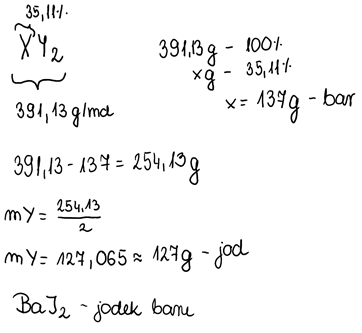 35,11%
XY₂
391,13 g/mol
391,13g - 100%
xg - 35,11%
x = 137g - bar
391,13 - 137 = 254,13g
mY = 254,13/2
mY = 127,065 ≈ 127g - jod
BaJ₂ - jodek baru